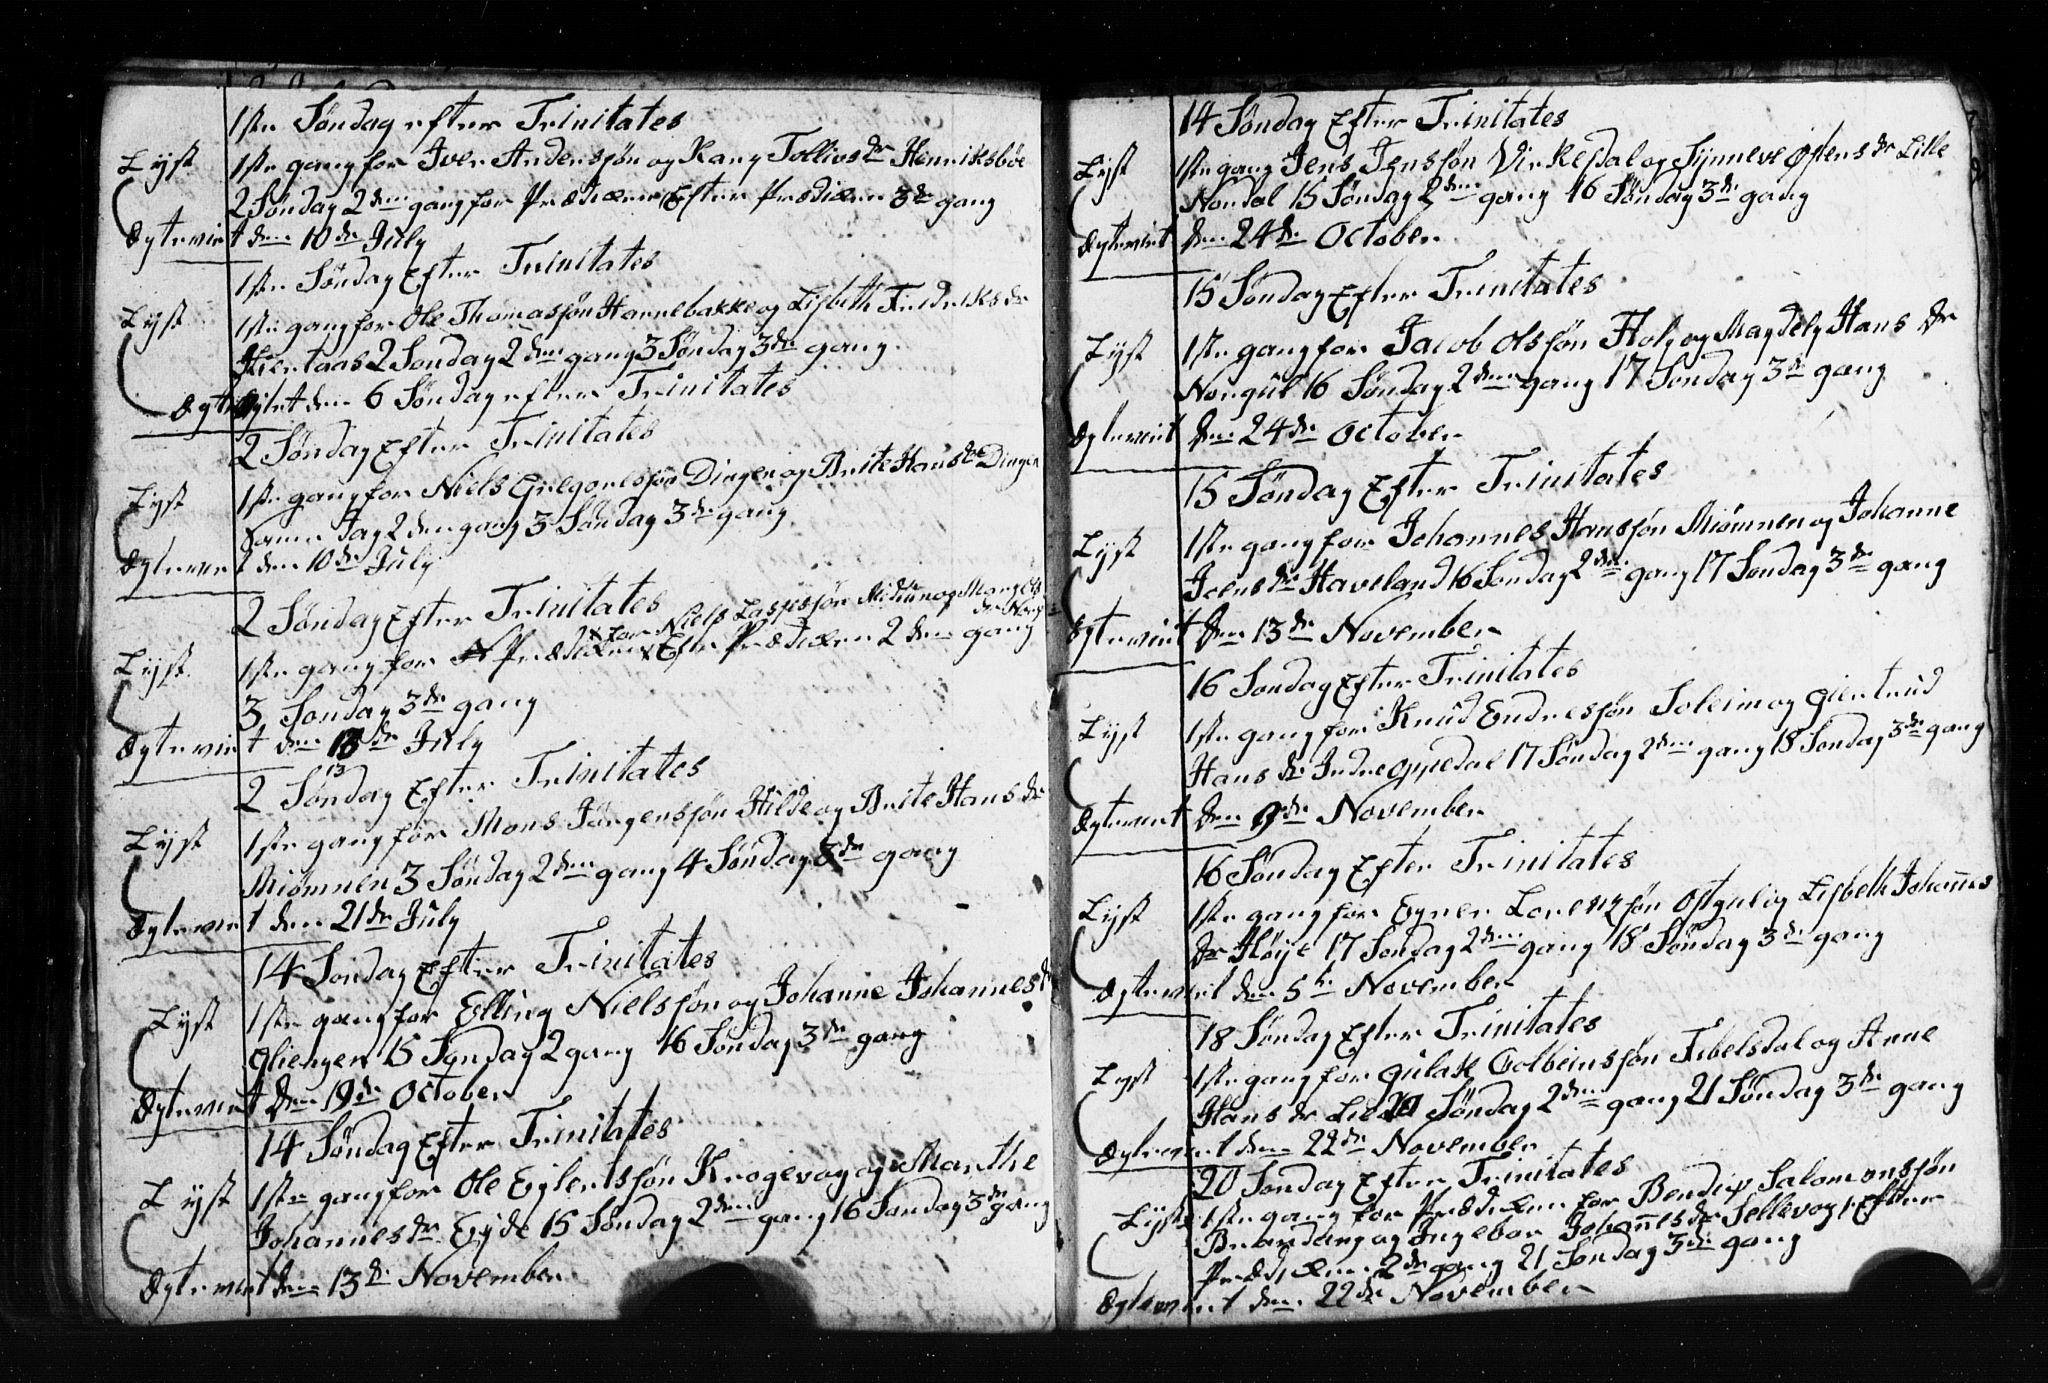 1ste Søndag efter Trinitates
Lyst 1ste gang for Iver Anderssøn og Rang Tollivs dr Henriksbøe
2 Søndag 2den gang for Prædicken Efter Prædicken 3de gang
Ægtevivt den 10de July
1ste Søndag Efter Trinitates
Lyst 1ste gang for Ole Thomassøn Hannebakke og Lisbeth Fridriks dr
Hiertaas 2 Søndag 2den gang 3 Søndag 3de gang
den 6 Søndag efter Trinitates
2 Søndag Efter Trinitates
Lyst 1ste gang for Niels Gregoriessøn Dingen og Brite Hans dr Dingen
samme Dag 2den gang 3 Søndag 3de gang
Ægtevivt den 10de July
2 Søndag Efter Trinitates
for Niels Lassessøn
Lyst 1ste gang for Prædicken Efter Prædicken 2den gang
3 Søndag 3de gang
Ægtevivt den 13de July
13
2 Søndag Efter Trinitates
Lyst 1ste gang for Mons Jørgenssøn Hilde og Brite Hans dr
Miømnen 3 Søndag 2den gang 4 Søndag 3de gang
Ægtevivt den 21de July
14 Søndag Efter Trinitates
Lyst 1ste gang for Elling Nielssøn og Johanne Johannes dr
Gliengen 15 Søndag 2 gang 16 Søndag 3de gang
Ægtevivt den 19de October
14 Søndag Efter Trinitates
Lyst 1ste gang for Ole Eylertssøn Krogevog og Marthe
Johannes dr Eyde 15 Søndag 2den gang 16 Søndag 3de gang
Ægtevivt den 13de November
14 Søndag Efter Trinitates
Lyst 1ste gang Jens Jenssøn Virkesdal og Synneve Østens dr Lille
Nondal 15 Søndag 2den gang 16 Søndag 3de gang
Ægtevivt den 24de October
15 Søndag Efter Trinitates
Lyst 1ste gang for Jacob Olssøn Holz og Magdely Hans dr
Norgül 16 Søndag 2den gang 17 Søndag 3de gang
Ægtevivt den 24de October
15 Søndag Efter Trinitates
Lyst 1ste gang for Johannes Hanssøn Miømnen og Johanne
Joens dr Haveland 16 Søndag 2den gang 17 Søndag 3de gang
Ægtevivt den 13de November
16 Søndag Efter Trinitates
Lyst 1ste gang for Knud Endressøn Soleim og Giertrud
Hans dr Indre Oppedal 17 Søndag 2den gang 18 Søndag 3de gang
Ægtevivt den 9de November
16 Søndag Efter Trinitates
Lyst 1ste gang for Egner Lorenzsøn Ostgul og Lisbeth Johannes
dr Høye 17 Søndag 2den gang 18 Søndag 3de gang
Ægtevivt den 5te November
18 Søndag Efter Trinitates
Lyst 1ste gang for Gulak Colbeinssøn Tibelsdal og Anne
Hans dr 20 Søndag 2den gang 21 Søndag 3de gang
Ægtevivt den 22de November
20 Søndag Efter Trinitates
Lyst 1ste gang for Prædicken for Bendix Salomonssøn
Brandang og Ingebor Johannes dr Sellevog Efter
Prædicken 2de gang 21 Søndag 3de gang
Ægtevivt den 22de November